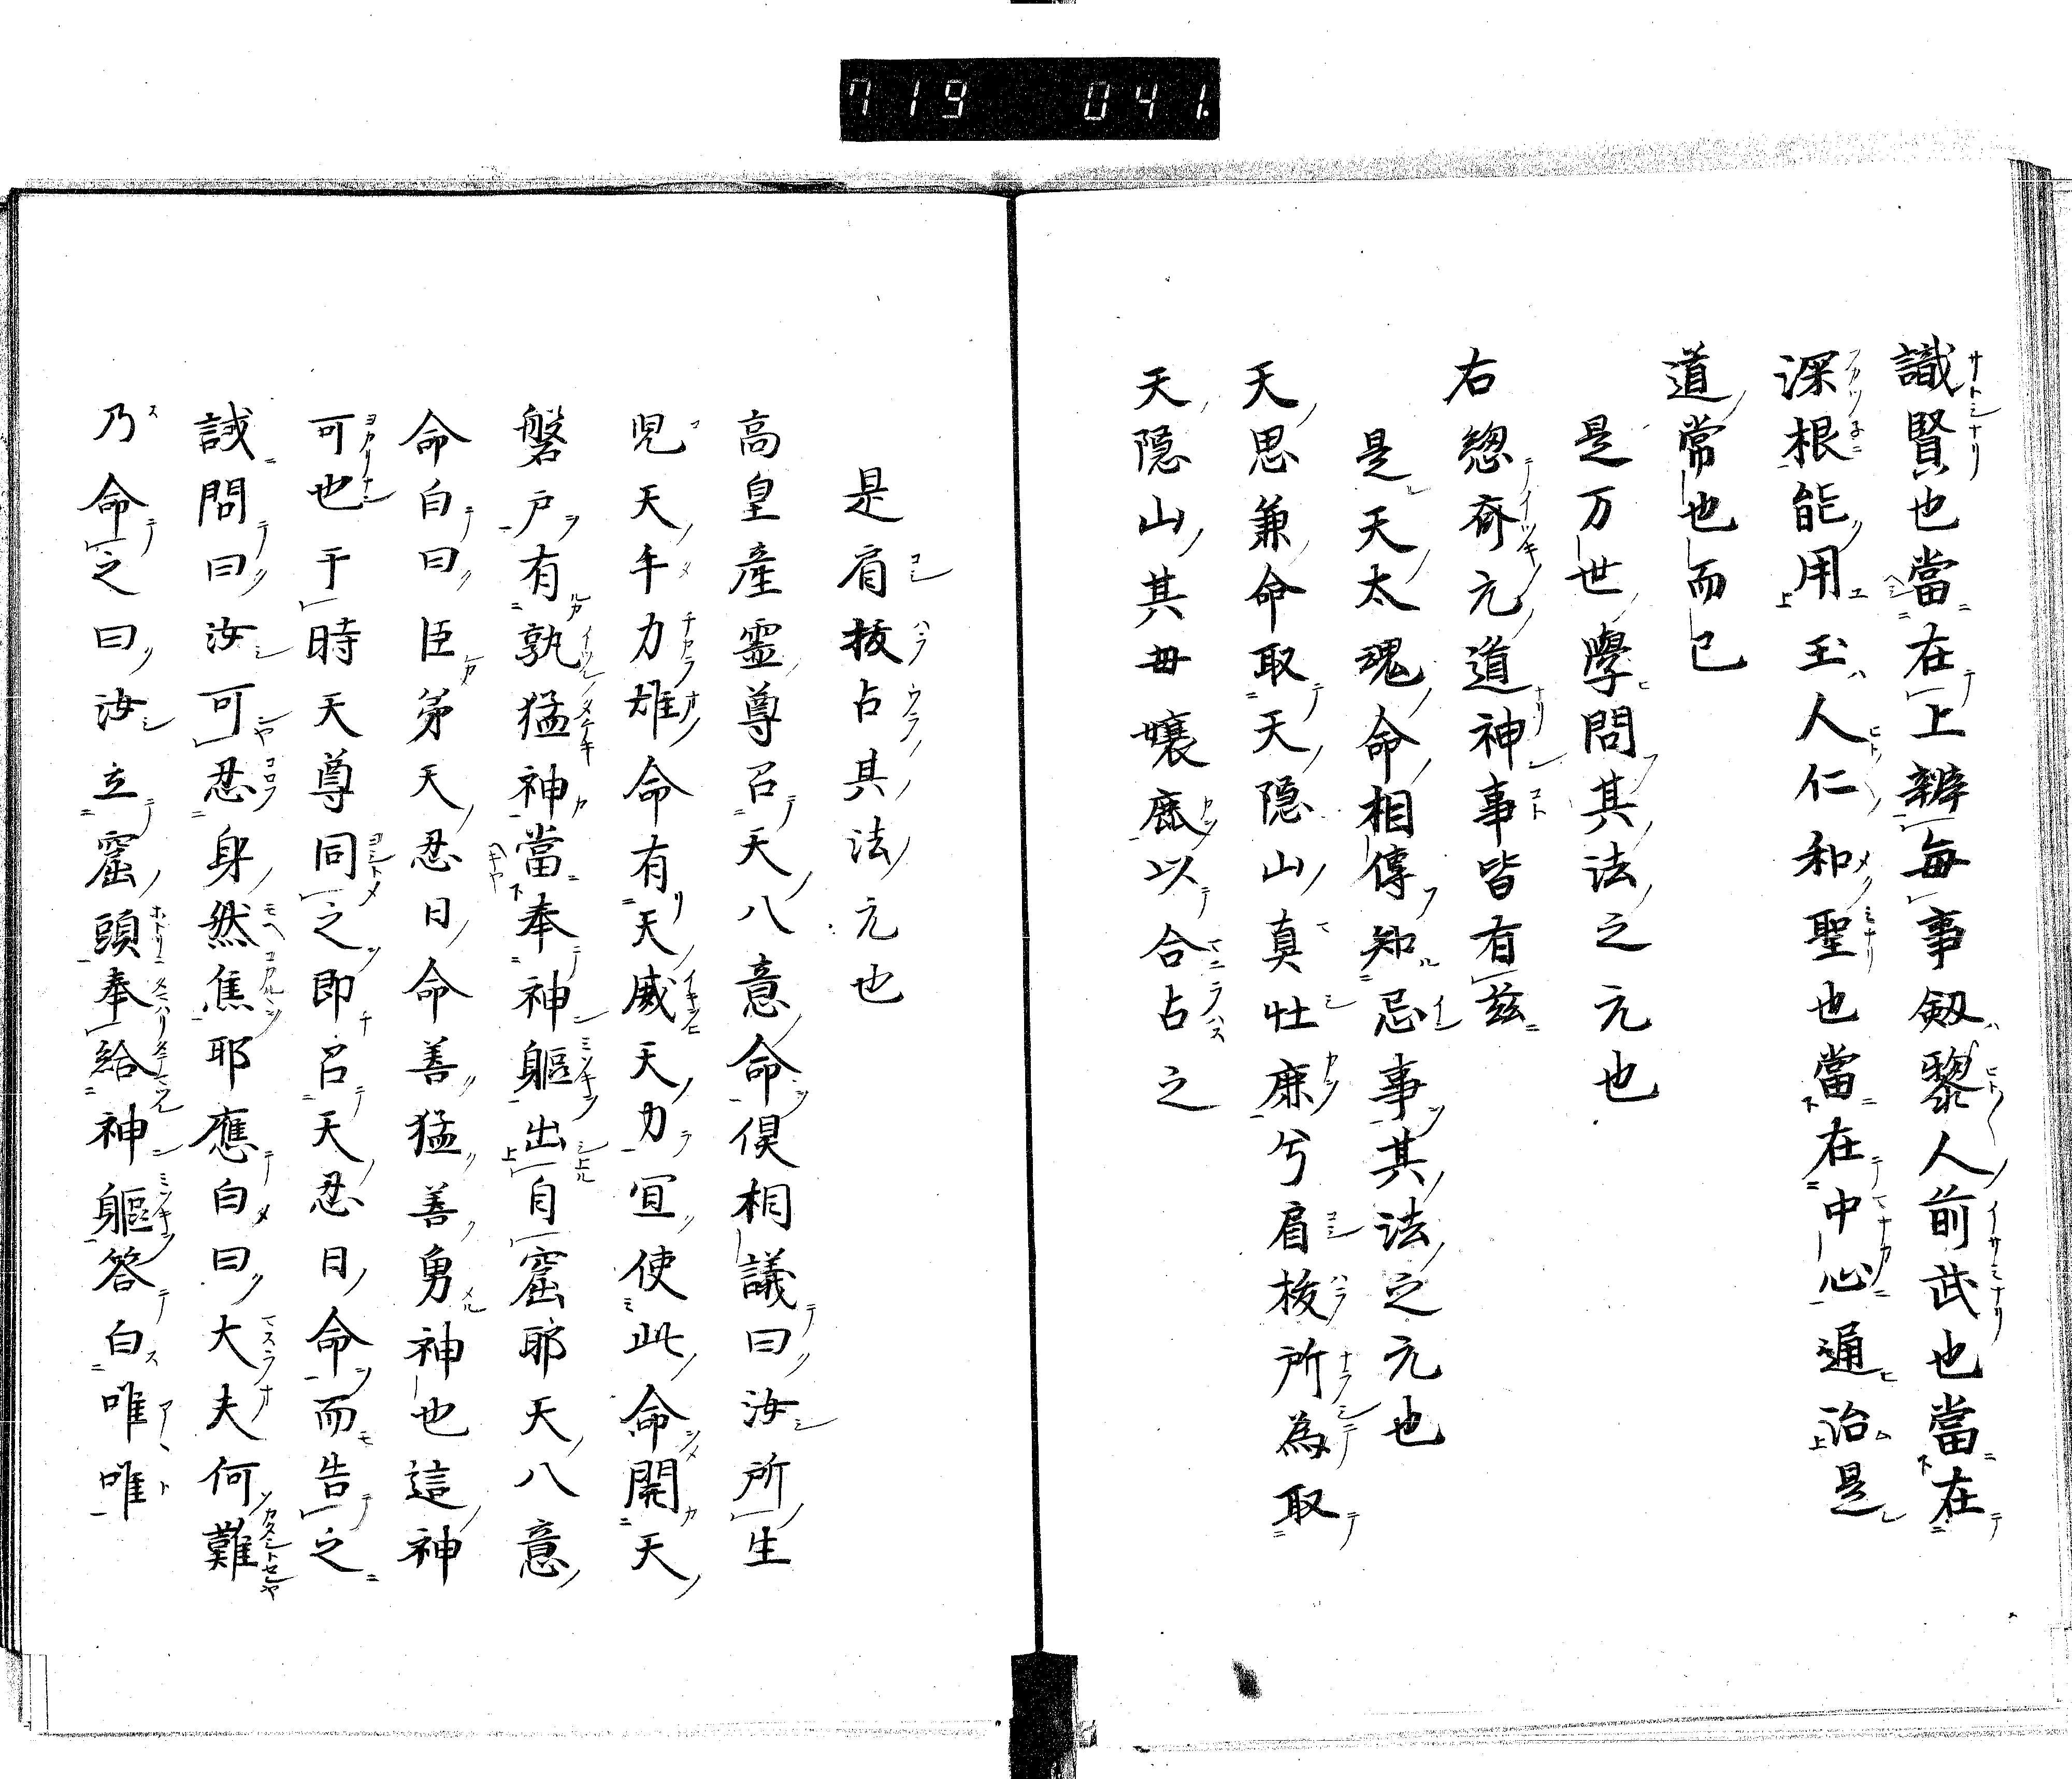 719 041.
識賢也當在上辨每事釼黎人前武也當在
深根能用玉人仁和聖也當在中心通治是
道常也而已
是万世學問其法之元也
右緫斎元道神事皆有茲
是天太瑰命相傳知忌事其法之元也
天思兼命取天隠山真牡麻兮肩拔所為取
天隠山其毌孃麻以合占之
是肩拔占其法元也
高皇産霊尊召天八意命俱相議曰汝所生
児天手力雄命有天威天力宜使此命開天
磐戸有孰猛神當奉神軀出自窟耶天八意
命白曰臣弟天忍日命善猛善勇神也這神
可也于時天尊同之即召天忍日命而告之
誠問曰汝可忍身然焦耶應白曰大夫何難
乃命之曰汝立窟頭奉給神軀答白唯唯